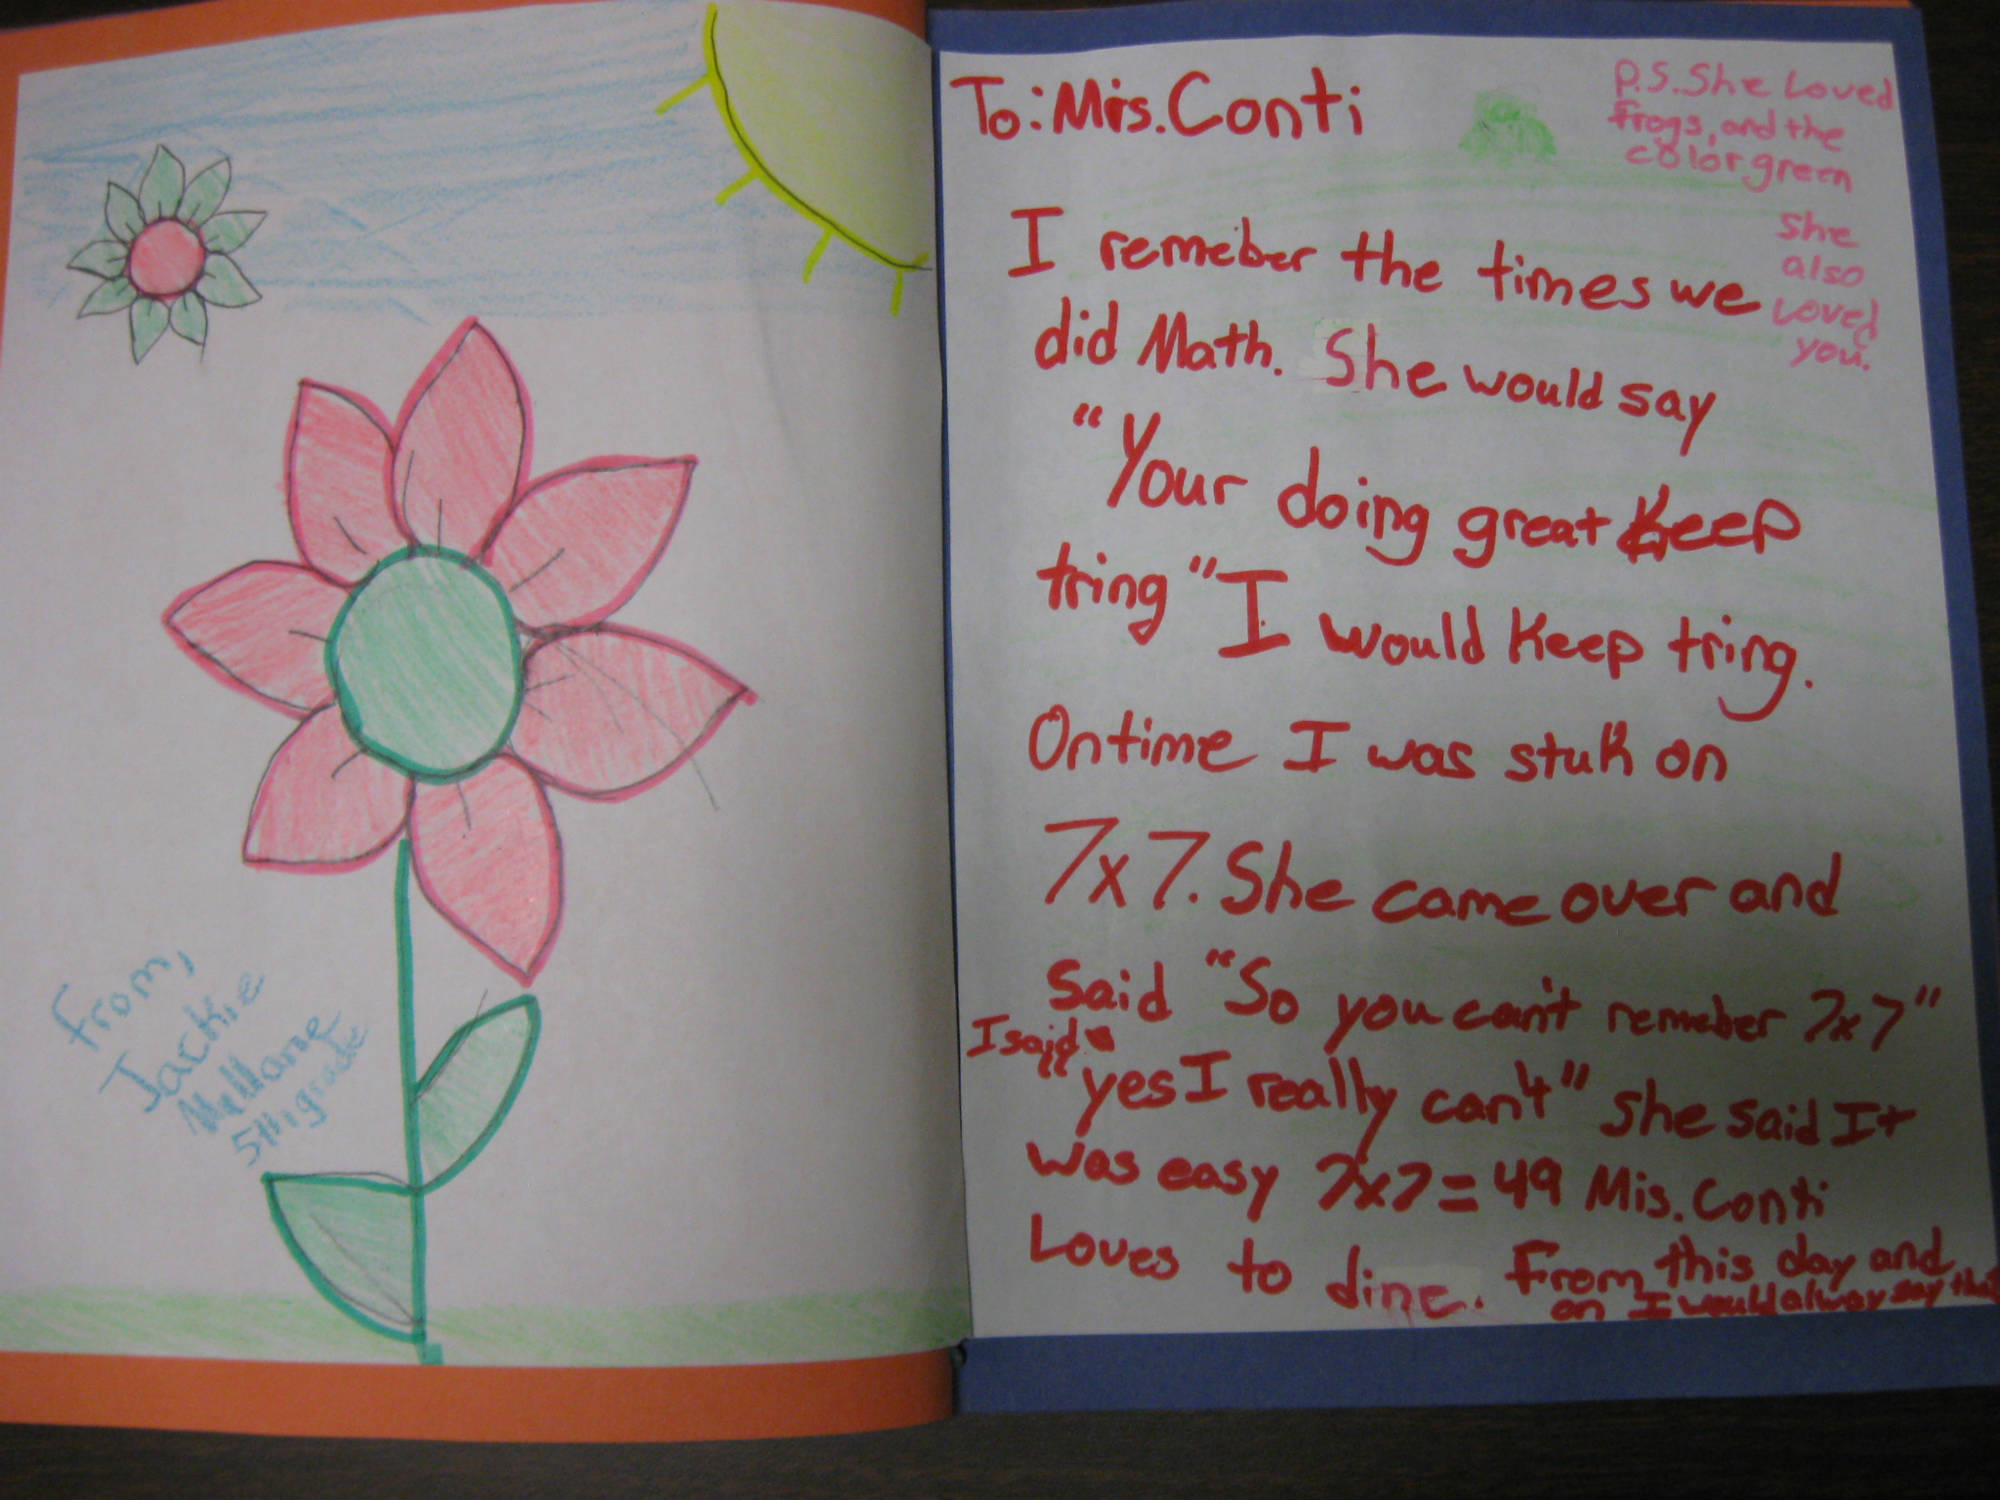 from,
Jackie
5th grade
To: Mrs. Conti
P.S. She Loved
frogs, and the
color green
She
also
Loved
you.
I remeber the times we
did Math. She would say
"Your doing great Keep
tring" I would Keep tring.
Ontime I was stuk on
7x7. She came over and
Said "So you can't remeber 7x7"
I said
"yes I really can't" She said It
was easy 7x7=49 Mis. Conti
Loves to dine. From this day and
on I would alway say that